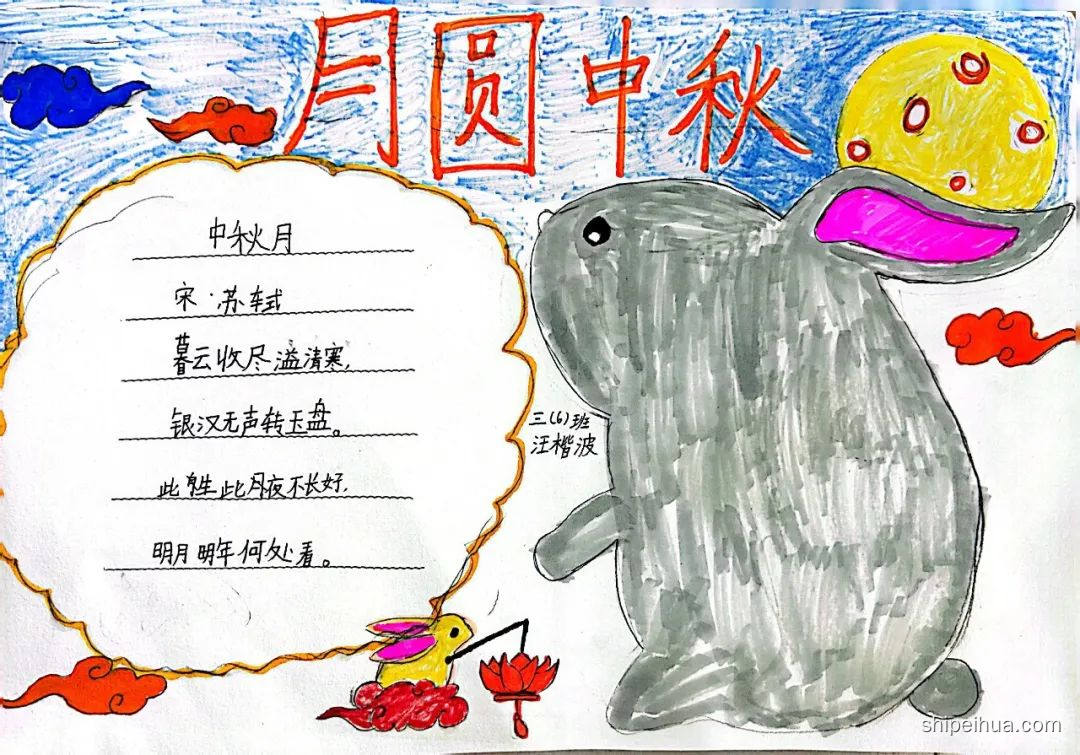 月圆中秋
中秋月
宋·苏轼
暮云收尽溢清寒,
银汉无声转玉盘。
此生此月夜不长好,
明月明年何处看。
三(6)班
汪楷波
shipeihua.com